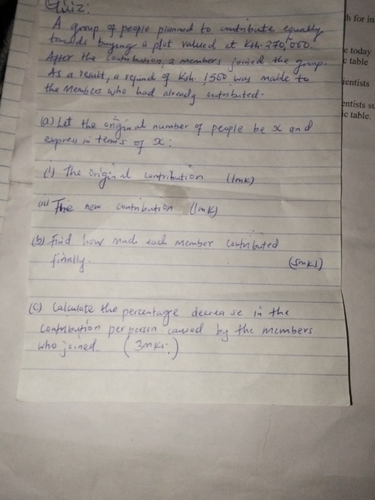 Quiz:
A group of people planned to contribute equally
towards buying a plot valued at Ksh 270,000.
After the contribution, 2 members joined the group.
As a result, a refund of Ksh 1,500 was made to
the members who had already contributed.
(a) Let the original number of people be x and
express in terms of x:
(i) The original contribution (1mk)
(ii) The new contribution (1mk)
(b) Find how much each member contributed
finally. (5mks)
(c) Calculate the percentage decrease in the
contribution per person caused by the members
who joined. (3mks)
h for in
e today
c table
ientists
entists
c table.